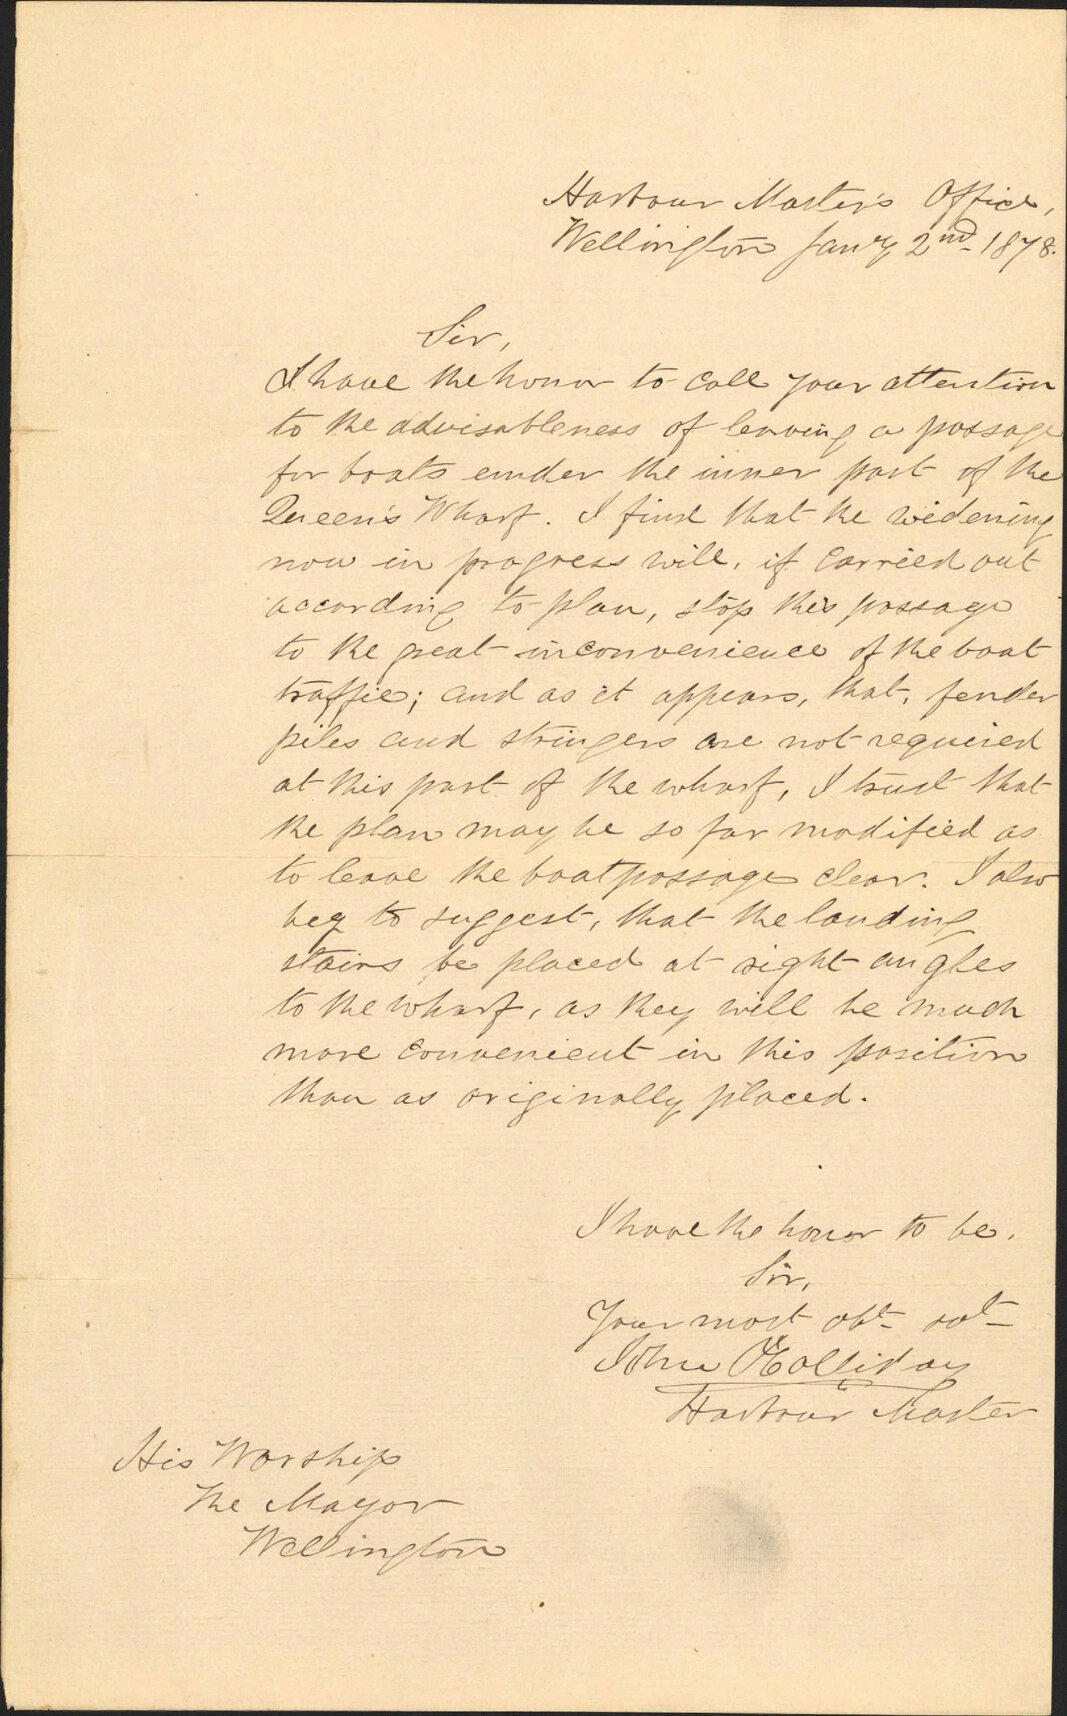 Harbour Master's Office,
Wellington Jany 2nd 1878.
Sir,
I have the honor to call your attention
to the advisableness of leaving a passage
for boats under the inner part of the
Queen's Wharf. I find that the widening
now in progress will, if carried out
according to plan, stop this passage
to the great inconvenience of the boat
traffic; and as it appears, that, fender
piles and stringers are not required
at this part of the wharf, I trust that
the plan may be so far modified as
to leave the boat passage clear. I also
beg to suggest, that the landing
stairs be placed at right angles
to the wharf, as they will be much
more convenient in this position
than as originally placed.
I have the honor to be,
Sir,
Your most obt svt
John Holliday
Harbour Master
His Worship
The Mayor
Wellington